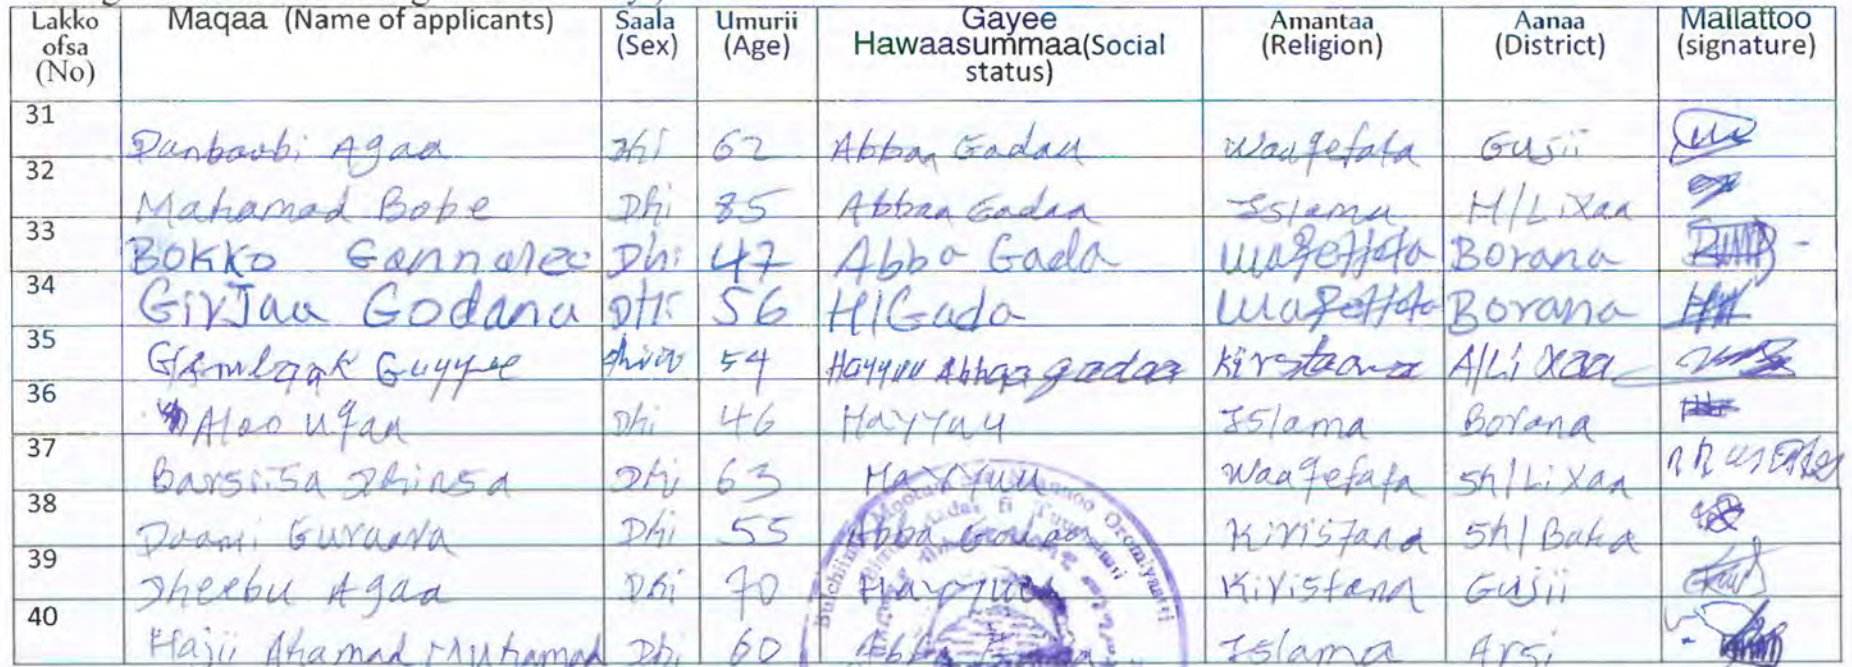 Lakko ofsa (No) Maqaa (Name of applicants) Saala (Sex) Umurii (Age) Gayee Hawaasummaa(Social status) Amantaa (Religion) Aanaa (District) Mallattoo (signature)
31 Danboobi Agaa Dhi 62 Abbaa Gadaa Waaqefata Gujii
32 Mahamad Bobe Dhi 85 Abbaa Gadaa Islama H/Lixaa
33 BOKKO Dhi 47 Abba Gada Waqeffata Borana
34 GirJaa Godana Dhi 56 H/Gada Waqeffata Borana
35 Guyyee 54 Hayyuu Abbaa gadaa Kirstaana A/Lixaa
36 Aloo Ufaa Dhi 46 Hayyuu Islama Borana
37 Dhinsa Dhi 63 Hayyuu Waaqefata Sh/Lixaa
38 Daami Guraara Dhi 55 Abba Gadaa Kiristana Sh/Baha
39 Dheebu Agaa Dhi 70 Hayyuu Kiristana Gujii
40 Hajii Ahamad Muhamad Dhi 60 Abba Islama Arsi